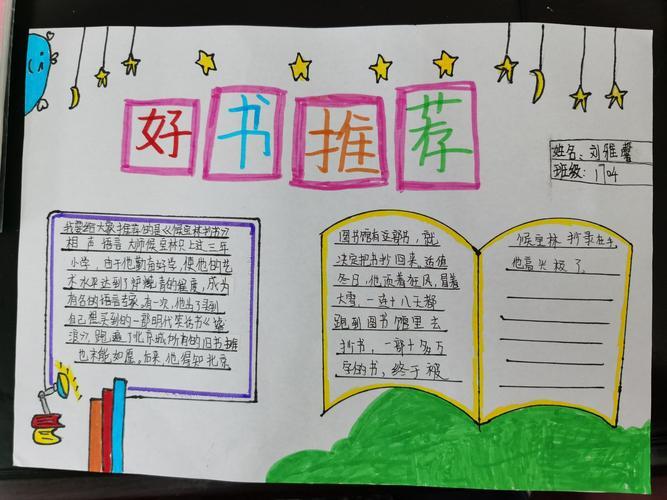 好书推荐
姓名：刘雅馨
班级：1704
我要给大家推荐的是《候宝林抄书》
相声语言大师候宝林只上过三年
小学，由于他勤奋好学，使他的艺
术水平达到了炉火纯青的程度，成为
有名的语言专家。有一次，他为了买到
自己想买到的一部明代笑话书《谑
浪》，跑遍了北京城所有的旧书摊
也未能如愿。后来，他得知北京
图书馆有这部书，就
决定把书抄回来。适值
冬日，他顶着狂风，冒着
大雪，一连十八天都
跑到图书馆里去
抄书，一部十多万
字的书，终于被
候宝林抄录在手，
他高兴极了。